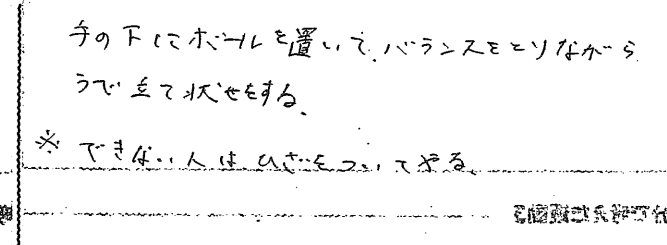 手の下にボールを置いて、バランスをとりながら
うで立て伏せをする。
※ できない人はひざをついてやる。